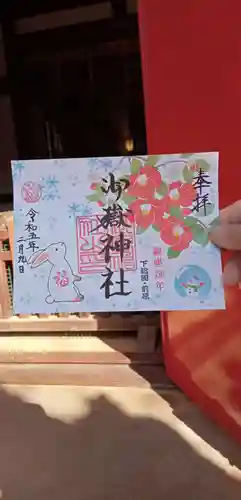 奉拝
御嶽神社
下総国・前原
令和五年
二月九日
福